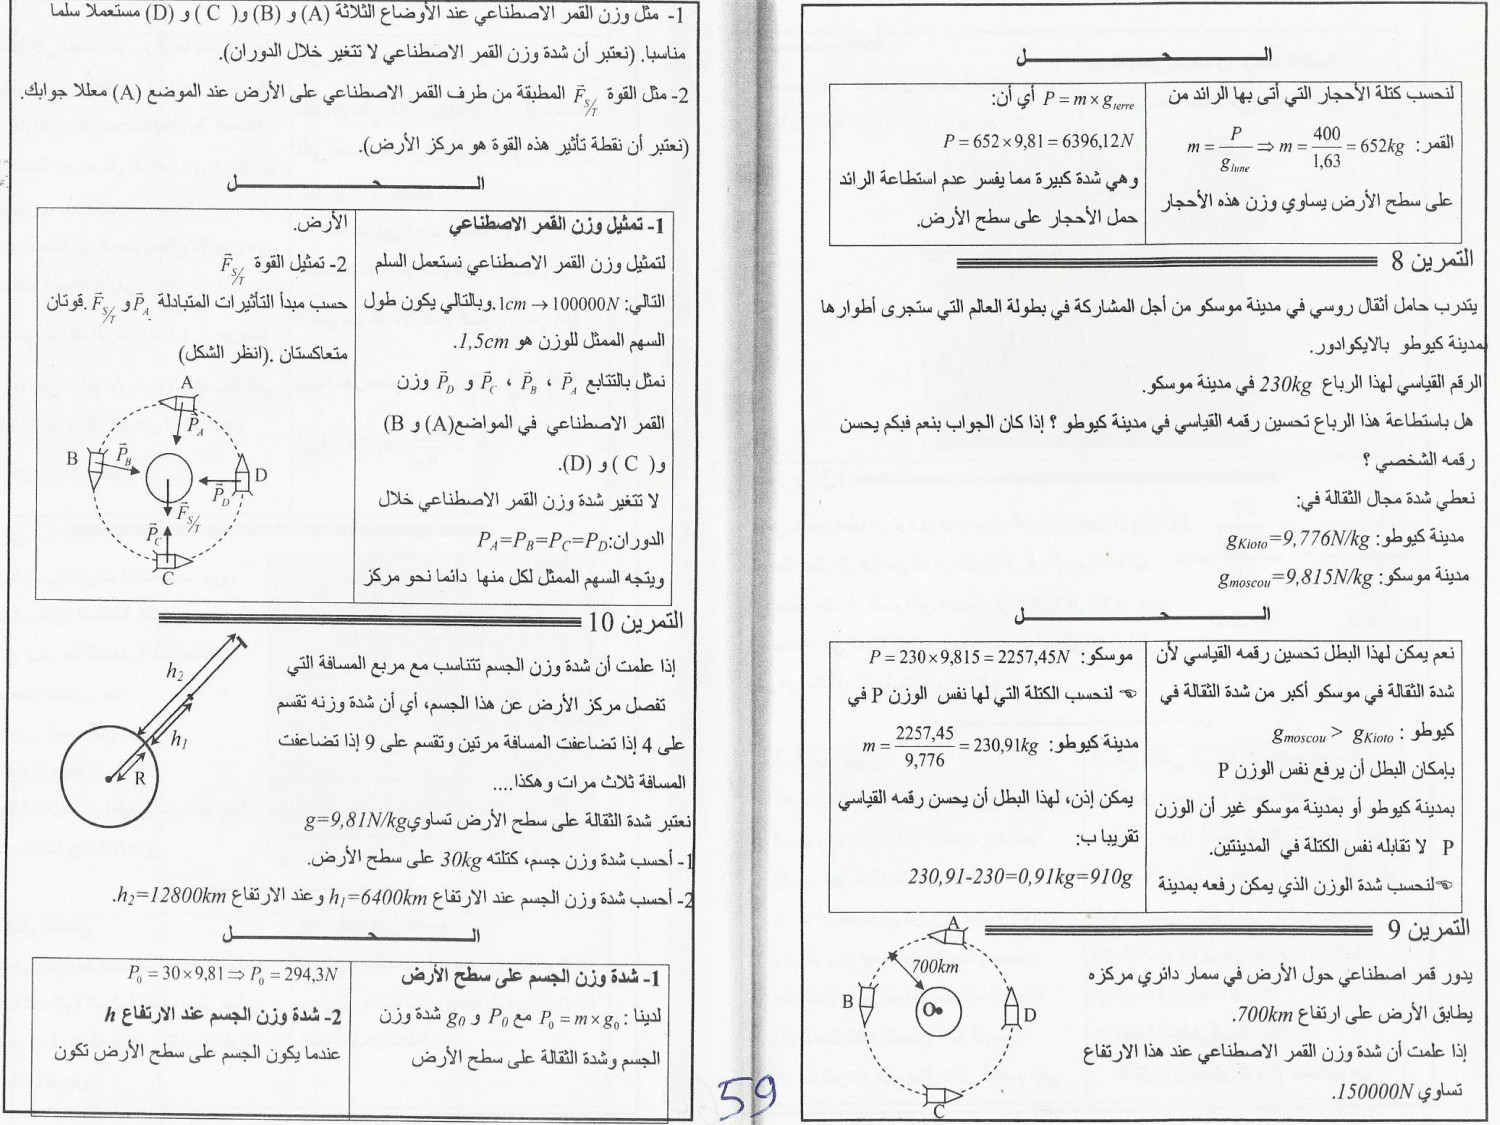 الـــــــحـــــــل
لنحسب كتلة الأحجار التي أتى بها الرائد من
القمر: m = P/g_lune ⇒ m = 400/1,63 = 652kg
على سطح الأرض يساوي وزن هذه الأحجار
P = m × g_terre أي أن:
P = 652 × 9,81 = 6396,12N
وهي شدة كبيرة مما يفسر عدم استطاعة الرائد
حمل الأحجار على سطح الأرض.
التمرين 8
يتدرب حامل أثقال روسي في مدينة موسكو من أجل المشاركة في بطولة العالم التي ستجرى أطوارها
بمدينة كيوطو بالايكوادور.
الرقم القياسي لهذا الرباع 230kg في مدينة موسكو.
هل باستطاعة هذا الرباع تحسين رقمه القياسي في مدينة كيوطو ؟ إذا كان الجواب بنعم فبكم يحسن
رقمه الشخصي ؟
نعطي شدة مجال الثقالة في:
مدينة كيوطو: g_Kioto=9,776N/kg
مدينة موسكو: g_moscou=9,815N/kg
الـــــــحـــــــل
نعم يمكن لهذا البطل تحسين رقمه القياسي لأن
شدة الثقالة في موسكو أكبر من شدة الثقالة في
كيوطو : g_moscou > g_Kioto
بإمكان البطل أن يرفع نفس الوزن P
بمدينة كيوطو أو بمدينة موسكو غير أن الوزن
P لا تقابله نفس الكتلة في المدينتين.
☜لنحسب شدة الوزن الذي يمكن رفعه بمدينة
موسكو: P = 230 × 9,815 = 2257,45N
☜ لنحسب الكتلة التي لها نفس الوزن P في
مدينة كيوطو: m = 2257,45/9,776 = 230,91kg
يمكن إذن، لهذا البطل أن يحسن رقمه القياسي
تقريبا ب:
230,91-230=0,91kg=910g
التمرين 9
يدور قمر اصطناعي حول الأرض في سمار دائري مركزه
يطابق الأرض على ارتفاع 700km.
إذا علمت أن شدة وزن القمر الاصطناعي عند هذا الارتفاع
تساوي 150000N.
A
700km
B
O
D
C
1- مثل وزن القمر الاصطناعي عند الأوضاع الثلاثة (A) و (B) و( C ) و (D) مستعملا سلما
مناسبا. (نعتبر أن شدة وزن القمر الاصطناعي لا تتغير خلال الدوران).
2- مثل القوة F⃗_S/T المطبقة من طرف القمر الاصطناعي على الأرض عند الموضع (A) معللا جوابك.
(نعتبر أن نقطة تأثير هذه القوة هو مركز الأرض).
الـــــــحـــــــل
1- تمثيل وزن القمر الاصطناعي
لتمثيل وزن القمر الاصطناعي نستعمل السلم
التالي: 1cm → 100000N.وبالتالي يكون طول
السهم الممثل للوزن هو 1,5cm.
نمثل بالتتابع P⃗_A ، P⃗_B ، P⃗_C و P⃗_D وزن
القمر الاصطناعي في المواضع(A) و B)
و( C ) و (D).
لا تتغير شدة وزن القمر الاصطناعي خلال
الدوران:P_A=P_B=P_C=P_D
ويتجه السهم الممثل لكل منها دائما نحو مركز
الأرض.
2- تمثيل القوة F⃗_S/T
حسب مبدأ التأثيرات المتبادلة P⃗_A و F⃗_S/T .قوتان
متعاكستان .(انظر الشكل)
A
P⃗_A
B
P⃗_B
D
P⃗_D
F⃗_S/T
P⃗_C
C
التمرين 10
إذا علمت أن شدة وزن الجسم تتناسب مع مربع المسافة التي
تفصل مركز الأرض عن هذا الجسم، أي أن شدة وزنه تقسم
على 4 إذا تضاعفت المسافة مرتين وتقسم على 9 إذا تضاعفت
المسافة ثلاث مرات وهكذا....
نعتبر شدة الثقالة على سطح الأرض تساوي g=9,81N/kg
1- أحسب شدة وزن جسم، كتلته 30kg على سطح الأرض.
2- أحسب شدة وزن الجسم عند الارتفاع h1=6400km وعند الارتفاع h2=12800km.
h2
h1
R
الـــــــحـــــــل
1- شدة وزن الجسم على سطح الأرض
لدينا : P0 = m × g0 مع P0 و g0 شدة وزن
الجسم وشدة الثقالة على سطح الأرض
P0 = 30 × 9,81 ⇒ P0 = 294,3N
2- شدة وزن الجسم عند الارتفاع h
عندما يكون الجسم على سطح الأرض تكون
59